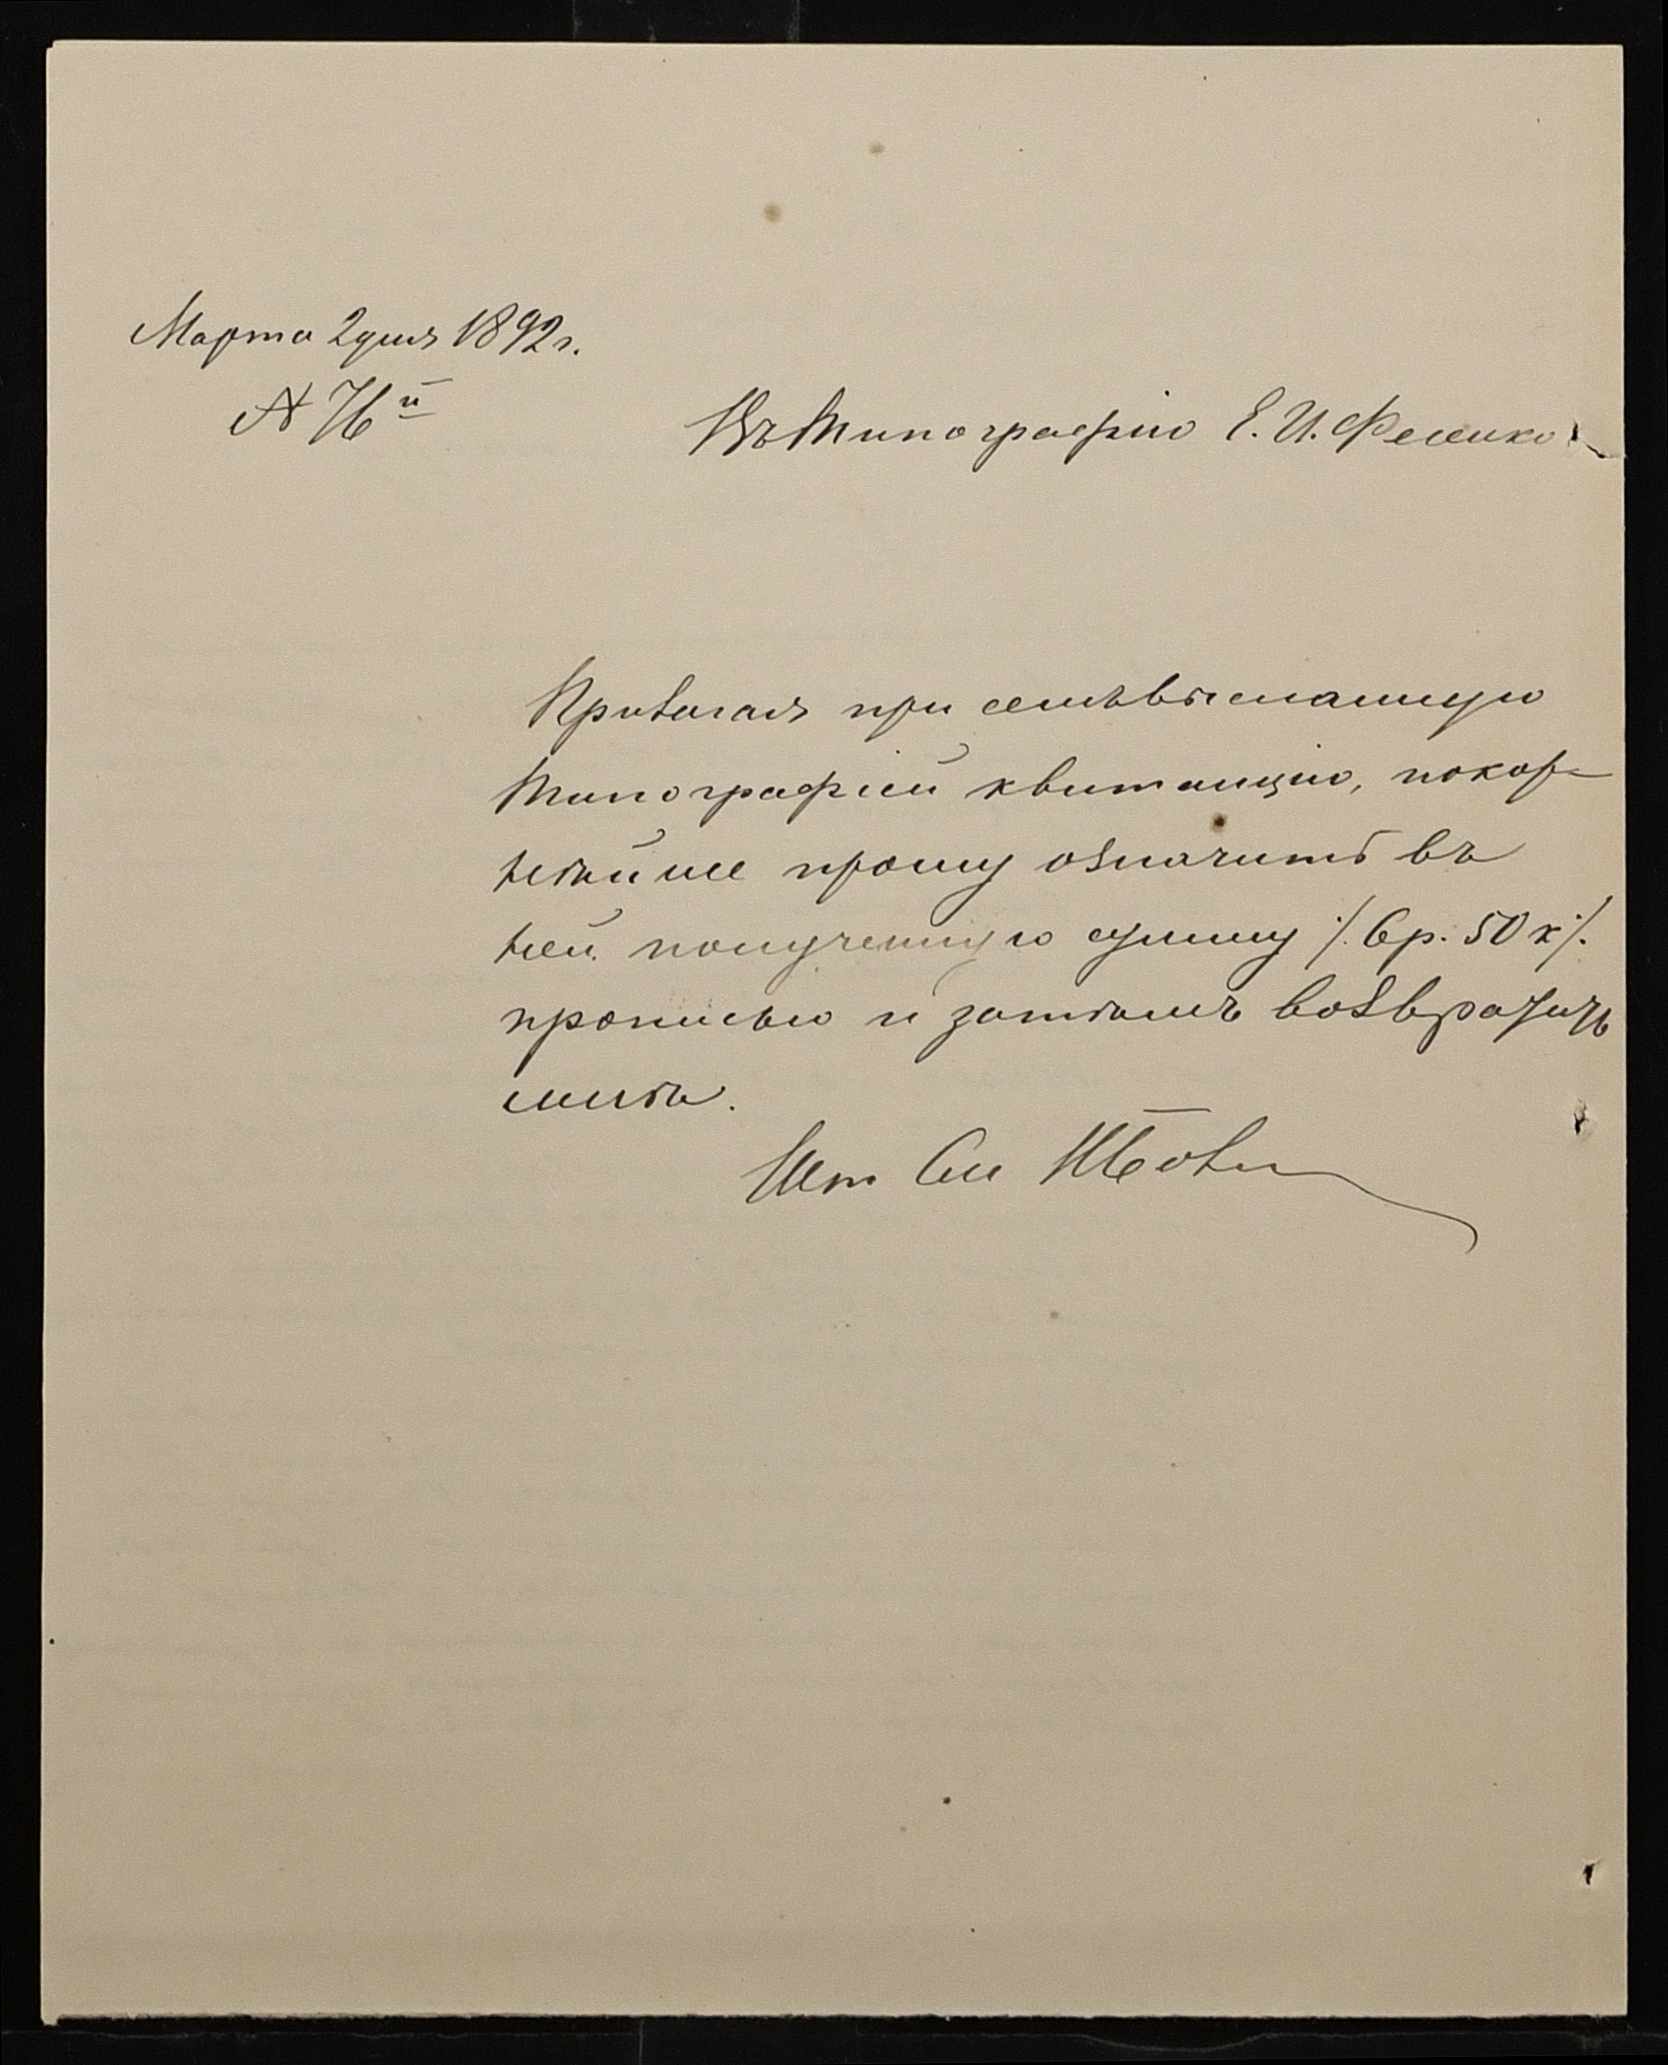 Марта 2 дня 1892 г.
№ 76й
Въ Типографію Е. И. Фесенко
Прилагая при семъ высланную
Типографіей квитанцію, покор-
нѣйше прошу означить въ
ней полученную сумму /. 6 р. 50 к /.
прописью и затѣмъ возвратить
мнѣ.